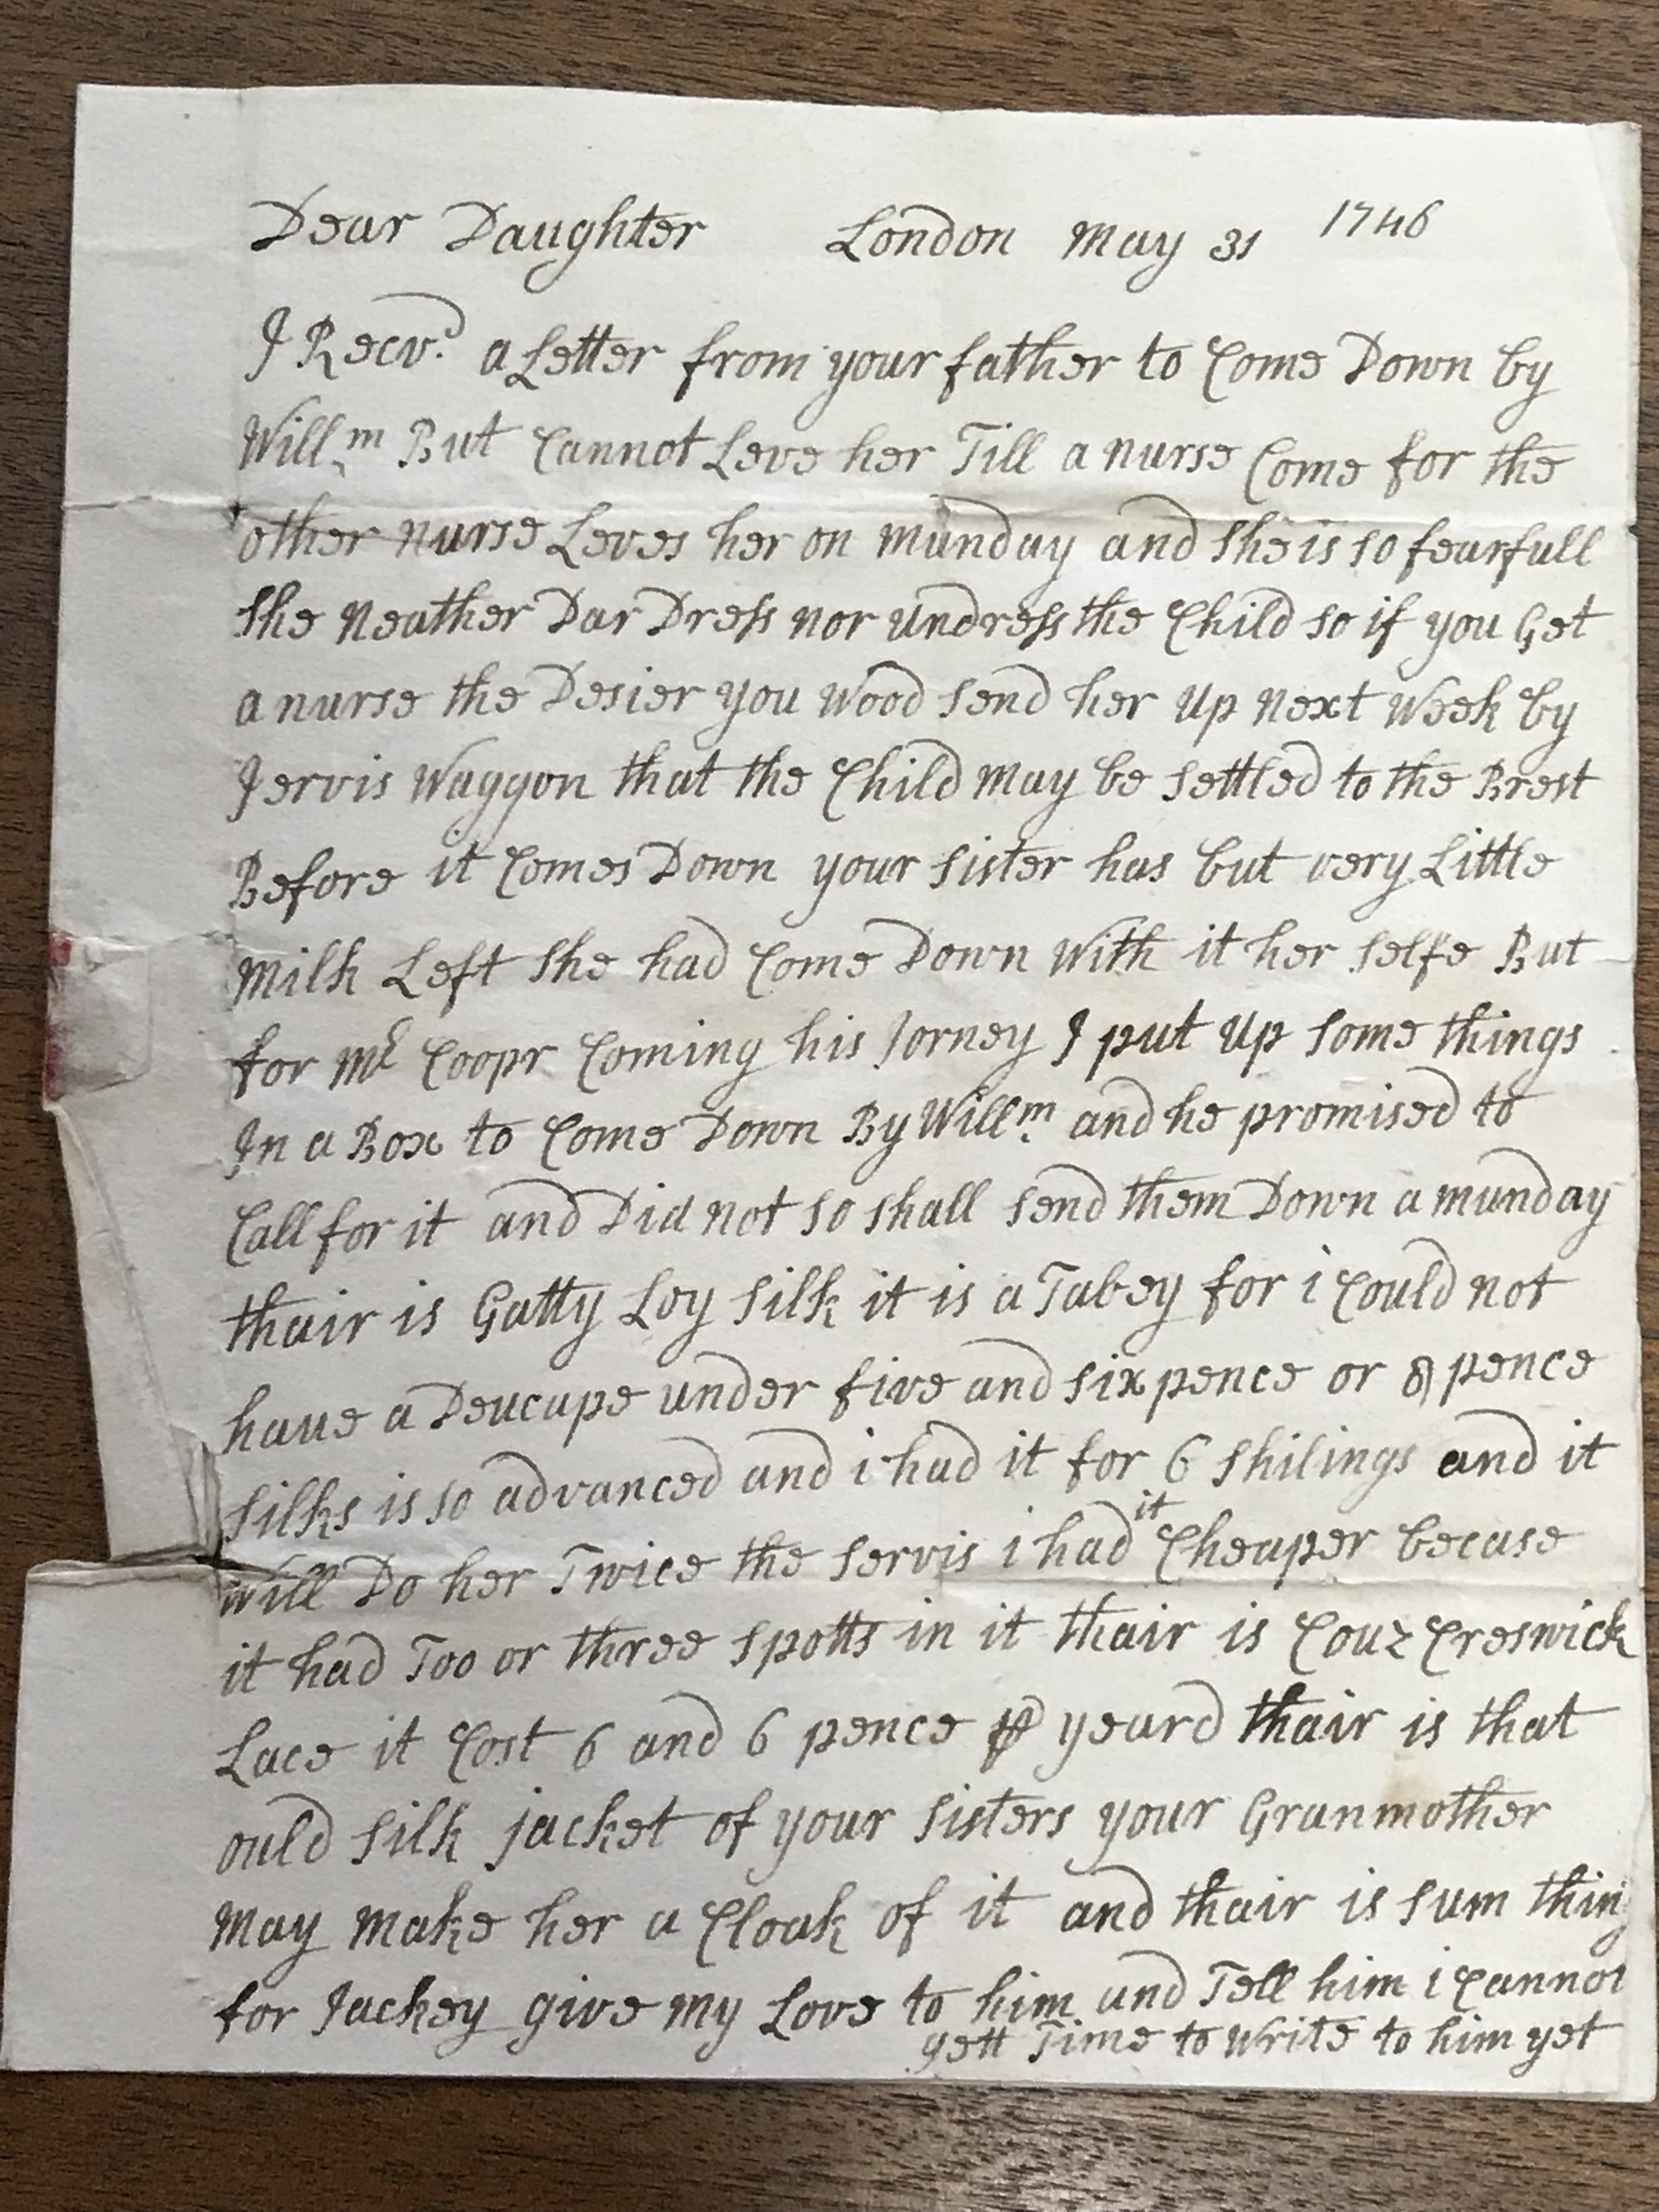 Dear Daughter London May 31 1746
I Recvd. a Letter from your father to Come Down by
Willm. But Cannot Leve her Till a nurse Come for the
other nurse Leves her on munday and she is so fearfull
she Neather Dar Dress nor undress the Child so if you Get
a nurse the Desier you Wood send her up next Week by
Jervis Waggon that the Child may be settled to the Brest
Before it Comes Down your sister has but very Little
milk Left she had Come Down With it her selfe But
for Mr Coopr Coming his Jorney I put up some things
In a Box to Come Down By Willm. and he promised to
Call for it and Did not so shall send them Down a munday
thair is Gatty Loy silk it is a Tabey for i Could not
haue a Deucape under five and sixpence or 8 pence
silks is so advanced and i had it for 6 shilings and it
will Do her Twice the servis i had it Cheaper becase
it had Too or three spotts in it thair is Couz Creswick
Lace it Cost 6 and 6 pence ꝑ yeard thair is that
ould silk jacket of your sisters your Granmother
may make her a Cloak of it and thair is sum thing
for Jackey give my Love to him and Tell him i Cannot
gett Time to Write to him yet